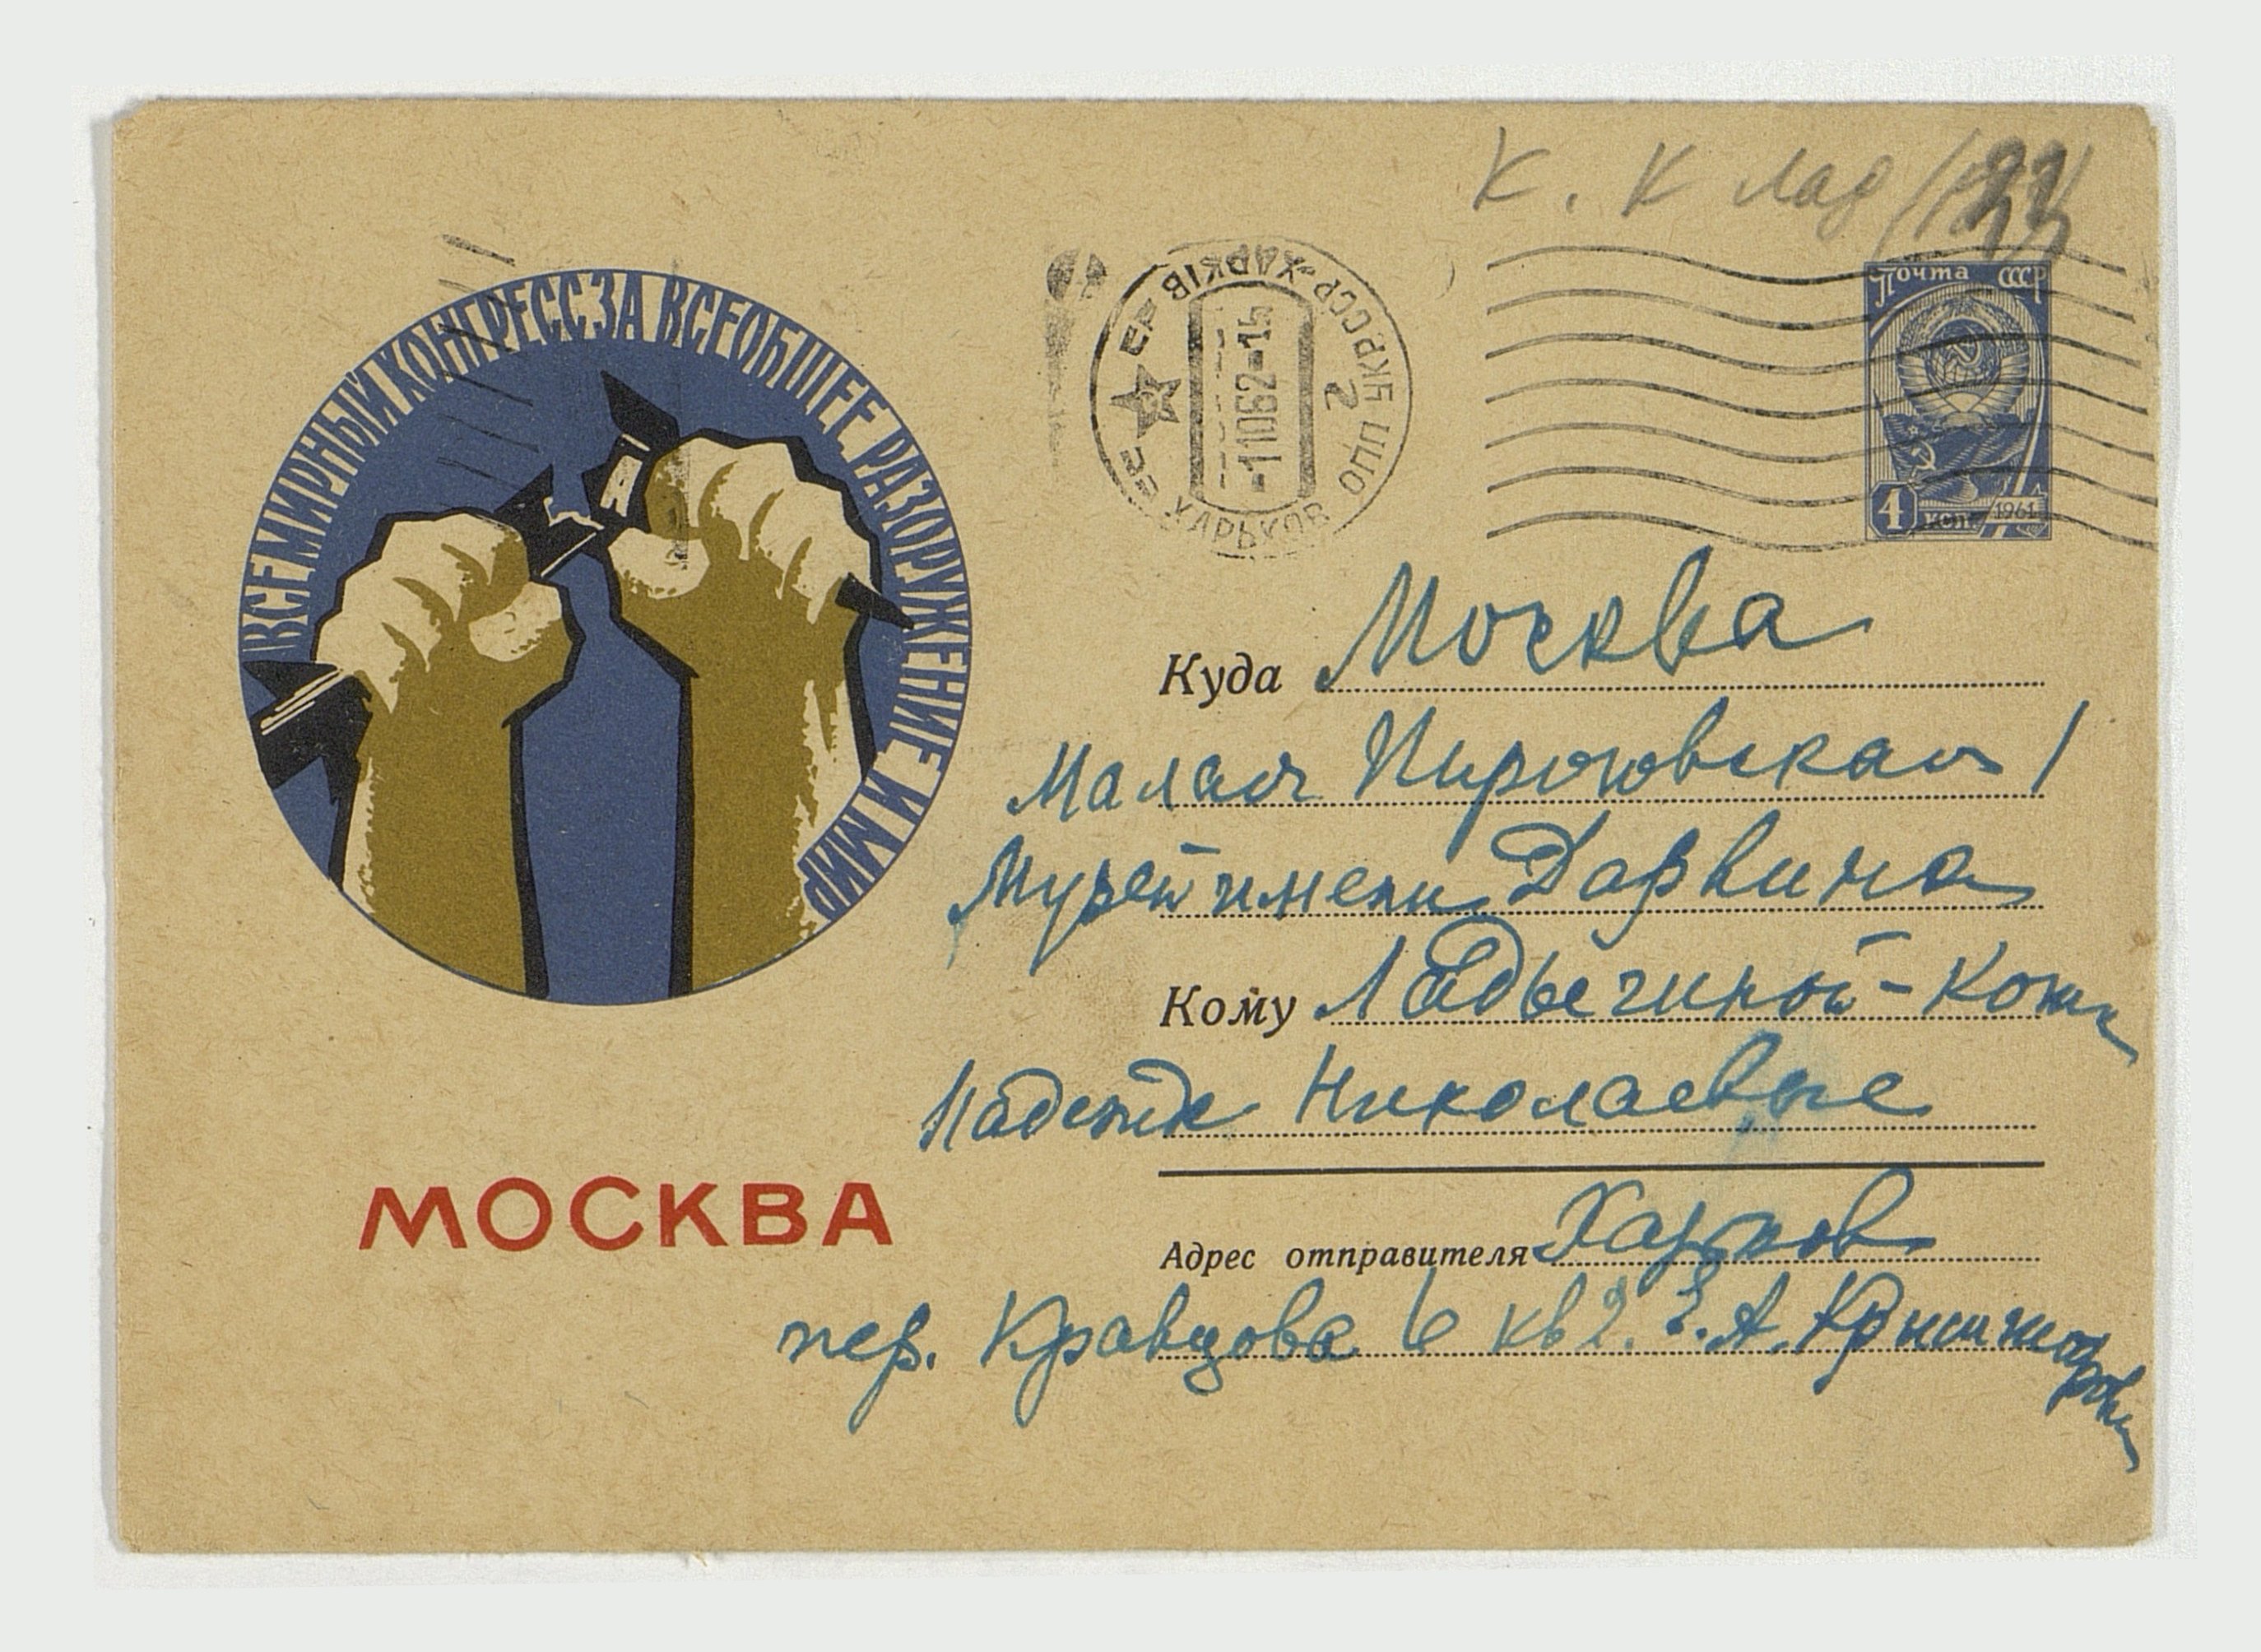 К. К Лад
Почта СССР
4 коп. 1961
УКР ССР-ХАРКІВ
ХАРЬКОВ
ППО
2
-11062-15
ВСЕМИРНЫЙ КОНГРЕСС ЗА ВСЕОБЩЕЕ РАЗОРУЖЕНИЕ И МИР
МОСКВА
Куда Москва
Малая Пироговская 1
Музей имени Дарвина
Кому Ладыгиной-Котс
Надежде Николаевне
Адрес отправителя Харьков
пер. Кравцова 6 кв 2. Е. А.